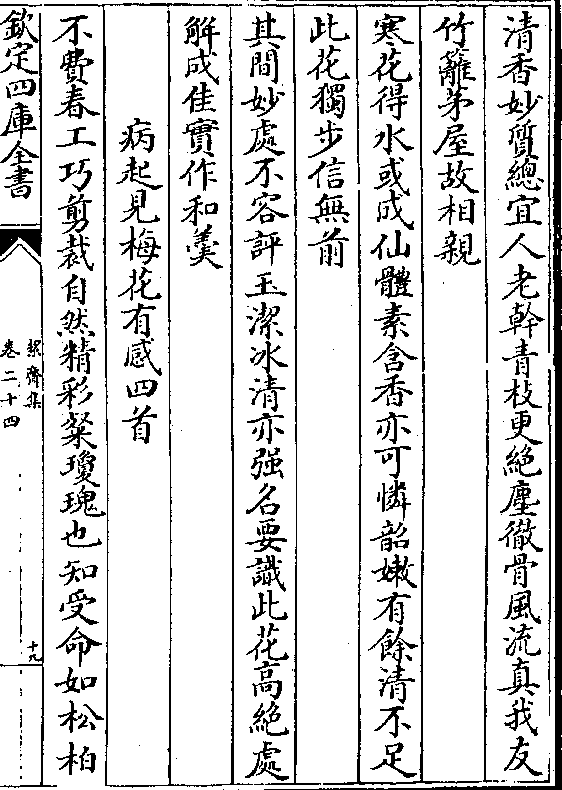 清香妙質總宜人老幹青枝更絕塵徹骨風流真我友
竹籬茅屋故相親
寒花得水或成仙體素含香亦可憐韶嫩有餘清不足
此花獨步信無前
其間妙處不容評玉潔冰清亦強名要識此花高絕處
解成佳實作和羹
病起見梅花有感四首
不費春工巧剪裁自然精彩粲瓊瑰也知受命如松柏
欽定四庫全書
絜齋集
卷二十四
十九